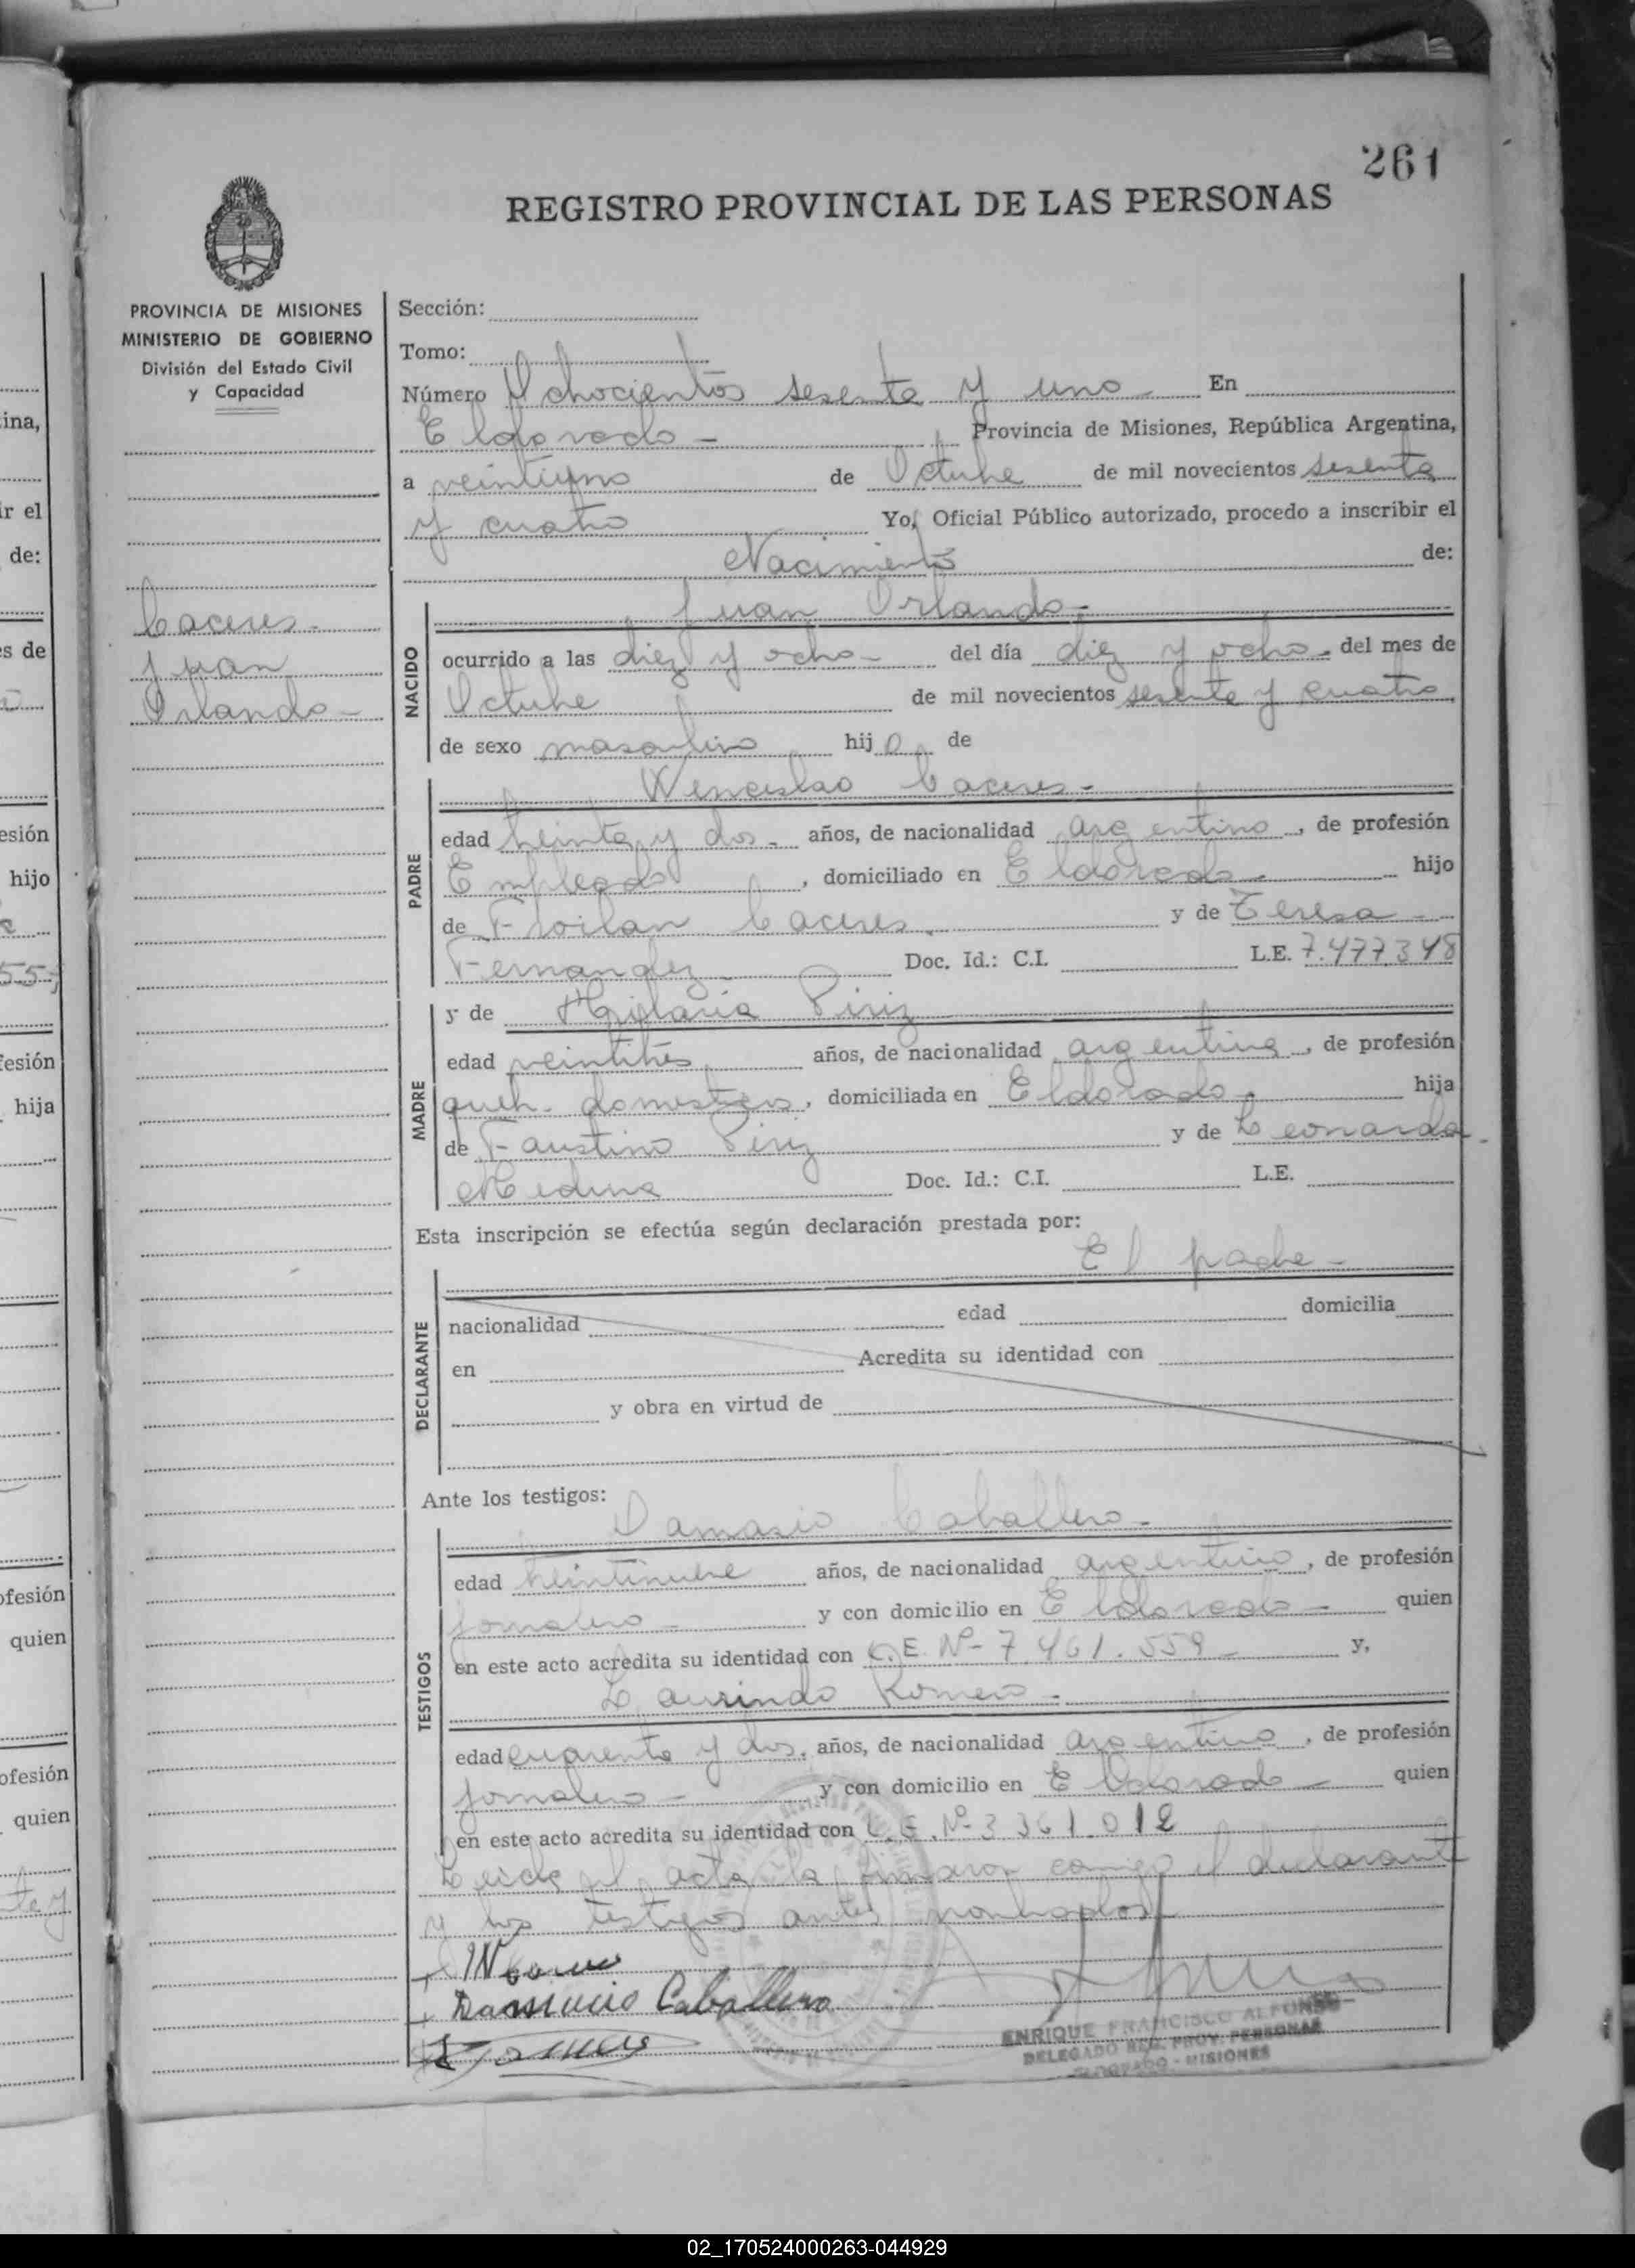 261
REGISTRO PROVINCIAL DE LAS PERSONAS
PROVINCIA DE MISIONES
MINISTERIO DE GOBIERNO
División del Estado Civil
y Capacidad
Caceres -
Juan
Orlando -
Sección:
Tomo:
Número Ochocientos sesenta y uno - En
Eldorado - Provincia de Misiones, República Argentina,
a veintiuno de Octubre de mil novecientos sesenta
y cuatro Yo, Oficial Público autorizado, procedo a inscribir el
Nacimiento de:
NACIDO
Juan Orlando -
ocurrido a las diez y ocho - del día diez y ocho - del mes de
Octubre de mil novecientos sesenta y cuatro
de sexo masculino hijo de
PADRE
Wenceslao Caceres -
edad treinta y dos - años, de nacionalidad argentino, de profesión
Empleado, domiciliado en Eldorado - hijo
de Froilan Caceres. y de Teresa -
Fernandez - Doc. Id.: C.I. L.E. 7.477.348
MADRE
y de Hilaria Piriz
edad veintitrés años, de nacionalidad argentina, de profesión
queh. domesticos, domiciliada en Eldorado - hija
de Faustino Piriz y de Leonarda -
Medina Doc. Id.: C.I. L.E.
Esta inscripción se efectúa según declaración prestada por:
El padre -
DECLARANTE
nacionalidad edad domicilia
en Acredita su identidad con
y obra en virtud de
Ante los testigos:
TESTIGOS
Damasio Caballero -
edad años, de nacionalidad argentino, de profesión
jornalero - y con domicilio en Eldorado - quien
en este acto acredita su identidad con L.E. Nº 7.461.559 - y,
Laurindo Romero -
edad cuarenta y dos, años, de nacionalidad argentino, de profesión
jornalero - y con domicilio en Eldorado - quien
en este acto acredita su identidad con L.E. Nº 3361.012
Leida el acta la firmaron conmigo el declarante
y los testigos antes nombrados
Damacio Caballero
ENRIQUE FRANCISCO ALFONSO
DELEGADO REG. PROV. PERSONAS
ELDORADO - MISIONES
ina,
ir el
de:
s de
esión
hijo
55
fesión
hija
ofesión
quien
ofesión
quien
02_170524000263-044929